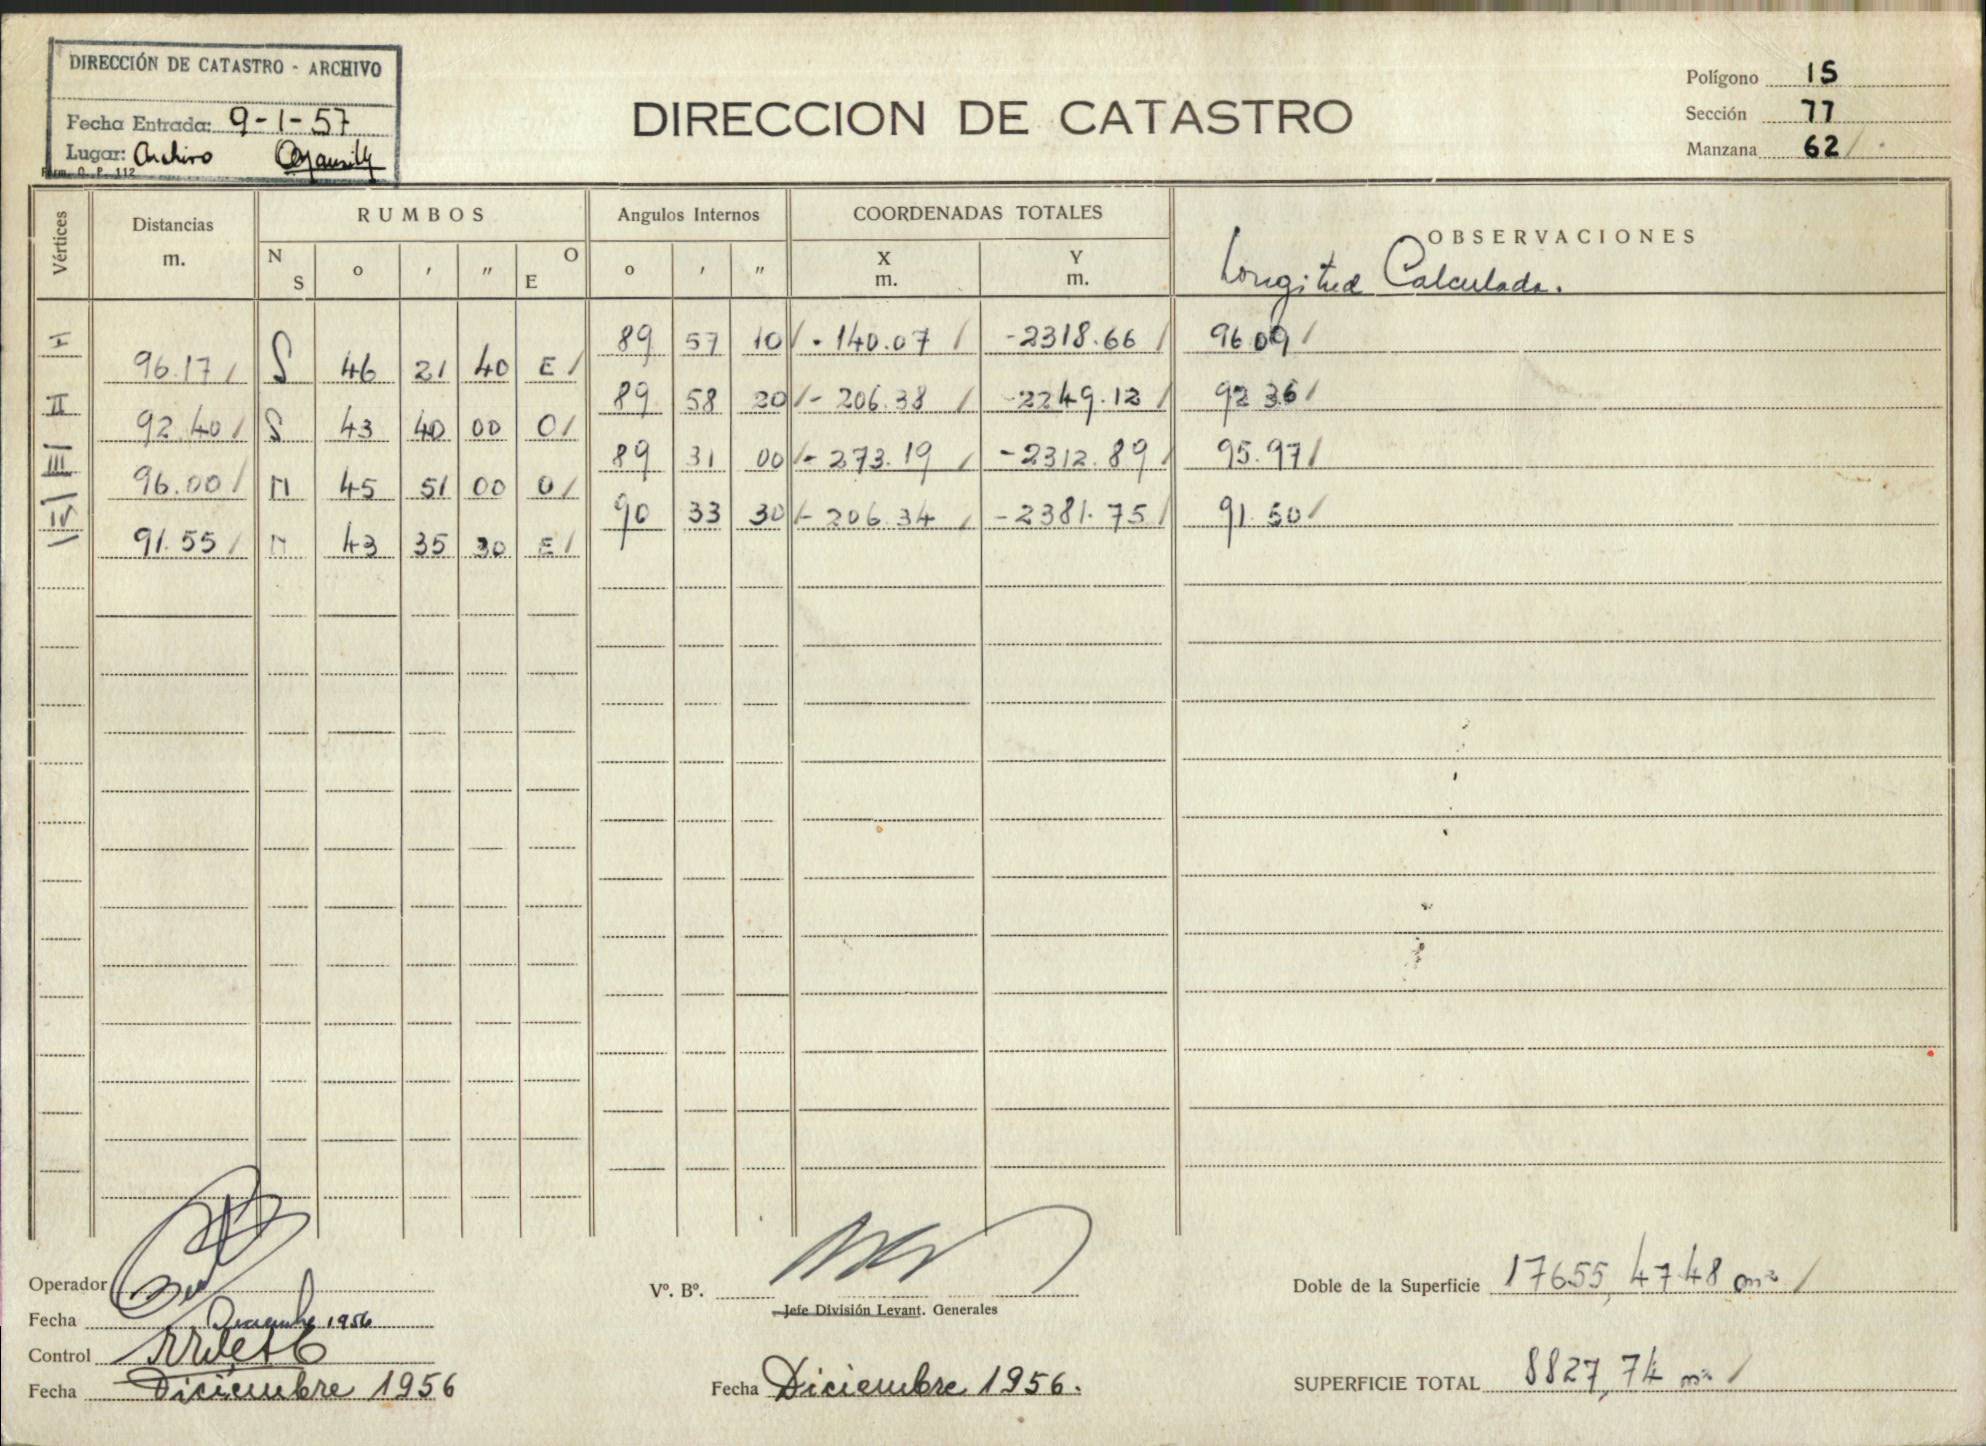 DIRECCIÓN DE CATASTRO - ARCHIVO
Fecha Entrada: 9-1-57
Lugar: Archivo
Form. O. P. 112
DIRECCION DE CATASTRO
Polígono 15
Sección 77
Manzana 62 /
Vértices Distancias m. RUMBOS Angulos Internos COORDENADAS TOTALES OBSERVACIONES
N S o ' " E O o ' " X m. Y m.
Longitud Calculada.
I 89 57 10 / - 140.07 / -2318.66 / 96 09 /
96.17 / S 46 21 40 E /
II 89 58 20 / - 206.38 / -2249.12 / 92 36 /
92.40 / S 43 40 00 O /
III 89 31 00 / - 273.19 / -2312.89 / 95.97 /
96.00 / N 45 51 00 O /
IV 90 33 30 / - 206.34 / -2381.75 / 91.50 /
91.55 / N 43 35 30 E /
Operador
Fecha Diciembre 1956
Control
Fecha Diciembre 1956
Vº. Bº.
Jefe División Levant. Generales
Fecha Diciembre 1956.
Doble de la Superficie 17655,4748 m² /
SUPERFICIE TOTAL 8827,74 m² /